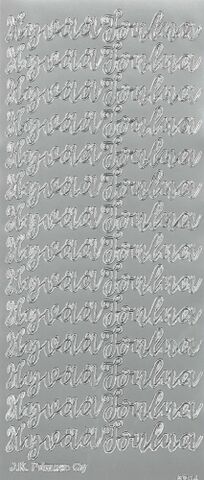 Hyvää Joulua
Hyvää Joulua
Hyvää Joulua
Hyvää Joulua
Hyvää Joulua
Hyvää Joulua
Hyvää Joulua
Hyvää Joulua
Hyvää Joulua
Hyvää Joulua
Hyvää Joulua
Hyvää Joulua
Hyvää Joulua
Hyvää Joulua
J.K. Primeco Oy